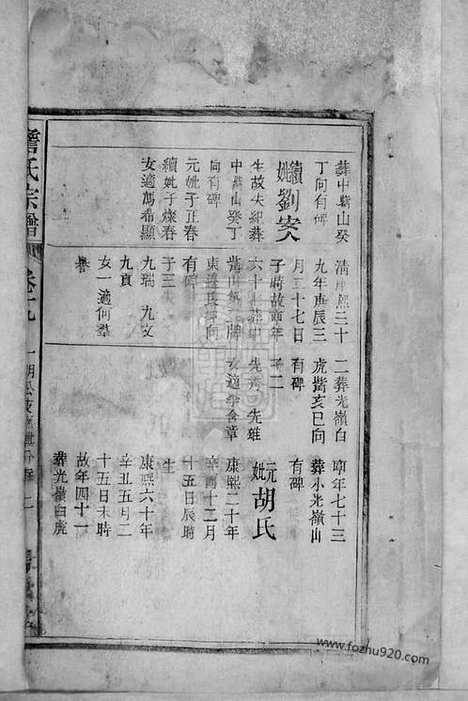 葬中觜山癸
丁向有碑
續妣劉安人
生故失紀葬
中觜山癸丁
元妣子正春
續妣子燦春
女適萬希顯
清康熙三十
九年庚辰三
月二十七日
子時故
六十
子三
九瑞 九文
九貢
女一適何羣
譽
二葬光嶺白
虎觜亥巳向
有碑
子二
先 先雖
女適李含章
享年七十三
葬小光嶺山
有碑
元妣胡氏
康熙二十年
辛酉十二月
十五日辰時
生
康熙六十年
辛丑五月二
十五日未時
故年四十一
葬光嶺白虎
氏宗譜
卷十九
www.fozhu920.com